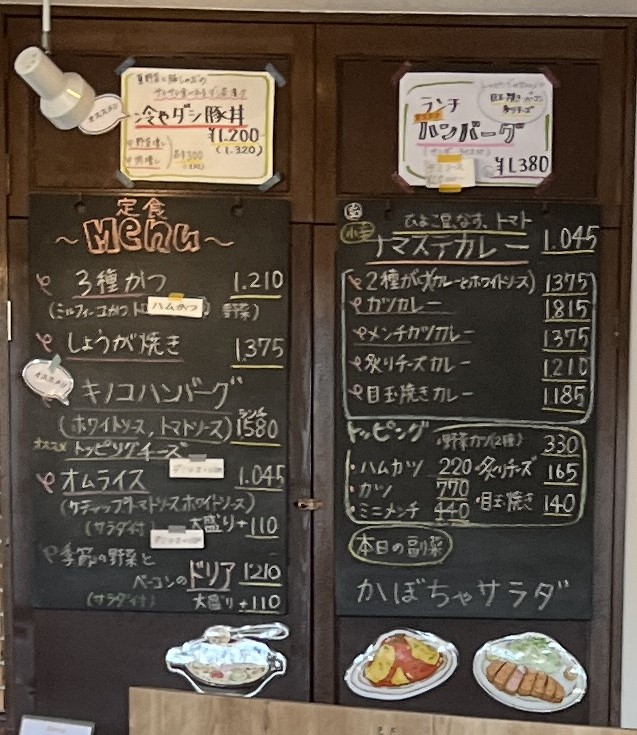 オススメ
冷やダシ豚丼
¥1.200
(1.320)
ランチ
ハンバーグ
¥1.380
定食
～Menu～
3種かつ 1.210
ハムかつ 野菜)
しょうが焼き 1.375
オススメ
キノコハンバーグ
(ホワイトソース,トマトソース) 1580
オススメ トッピングチーズ
オムライス 1.045
(ケチャップ・トマトソース・ホワイトソース)
(サラダ付) 大盛り+110
季節の野菜と
ベーコンのドリア 1210
(サラダ付) 大盛り+110
ひよこ豆、なす、トマト
ナマステカレー 1.045
1375
カツカレー 1.815
メンチカツカレー 1375
炙りチーズカレー 1210
目玉焼きカレー 1185
トッピング ・野菜カツ(2種) 330
・ハムカツ 220 ・炙りチーズ 165
・カツ 770
・ミニメンチ 440 ・目玉焼き 140
本日の副菜
かぼちゃサラダ